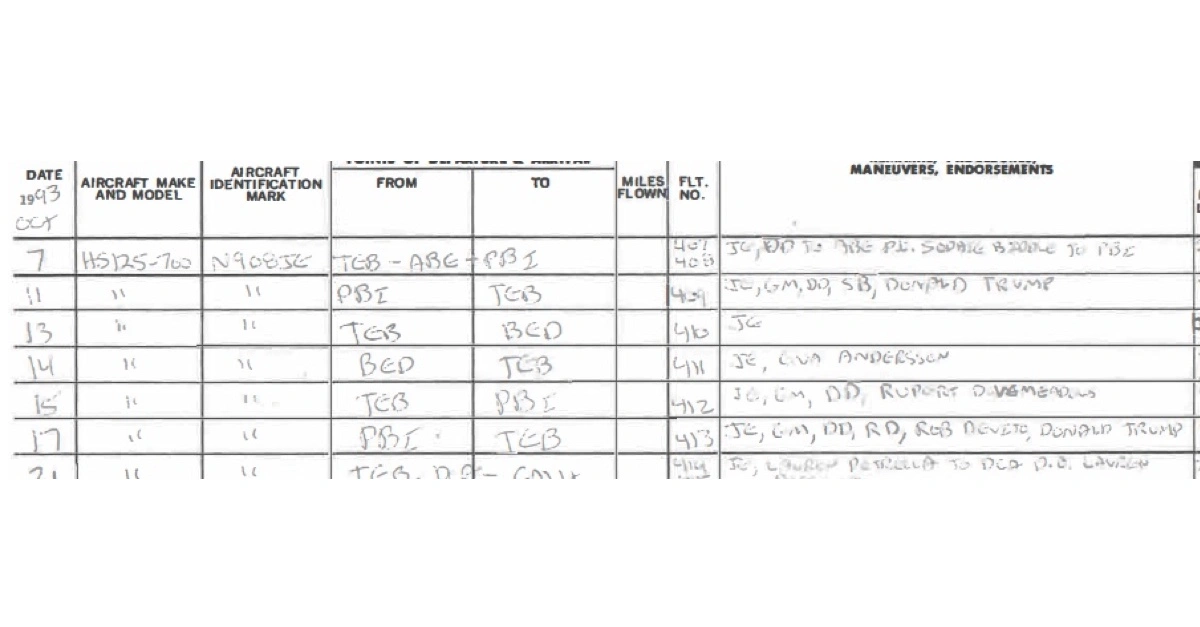 DATE
1993
OCT
AIRCRAFT MAKE AND MODEL
AIRCRAFT IDENTIFICATION MARK
FROM
TO
MILES FLOWN
FLT. NO.
MANEUVERS, ENDORSEMENTS
7 HS125-700 N908JE TEB - ABE - PBI 407 408 JE, DD TO ABE P.U. SOPHIE BIDDLE TO PBI
11 " " PBI TEB 409 JE, GM, DD, SB, DONALD TRUMP
13 " " TEB BED 410 JE
14 " " BED TEB 411 JE, EVA ANDERSSON
15 " " TEB PBI 412 JE, GM, DD,
17 " " PBI TEB 413 JE, GM, DD, RD, ROB DEVITO, DONALD TRUMP
21 " " TEB 414 JE, LAUREN PETRELLA TO DCA D.O. LAUREN